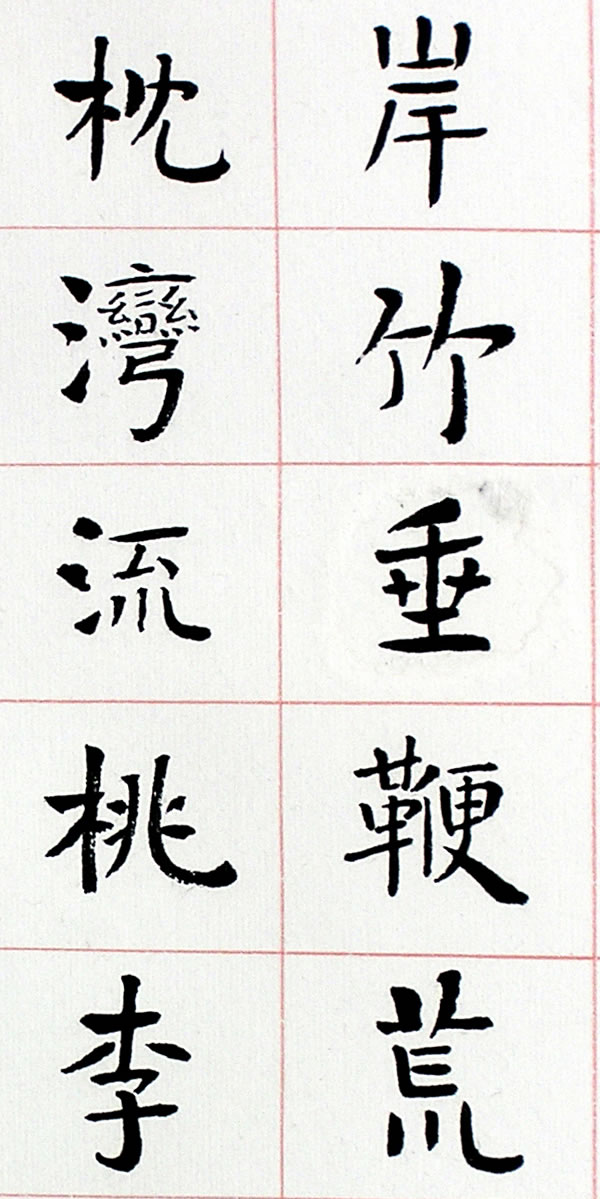 岸竹垂鞭荒
枕灣流桃李